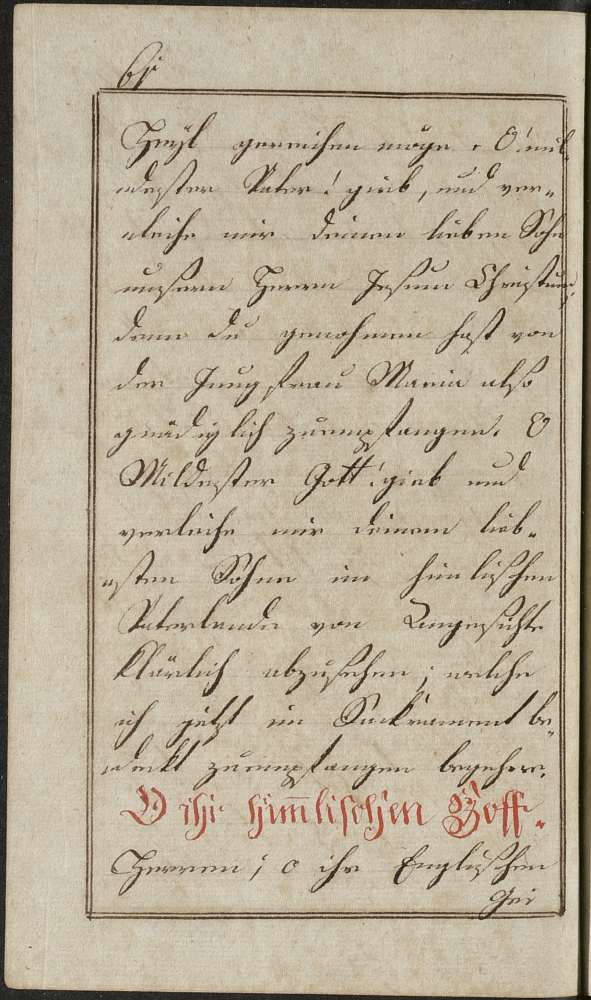 Heÿl gereichen möge. O! mil-
dester Vater! gieb, und ver-
leihe mir deinen lieben Sohn
unsern Herrn Jesum Christum,
denn du genohmen hast von
der Jungfrau Maria also
gnädiglich zuempfangen. O
Mildester Gott! gieb und
verleihe mir deinem lieb-
sten Sohne im himlischen
Vaterlande von Angesichte
klärlich abzusehen; welche
ich jetzt im Sackrament be-
deckt zuempfangen begehre.
O ihr him̅lischen Hoff-
Herren; o ihr Englischen
Gei